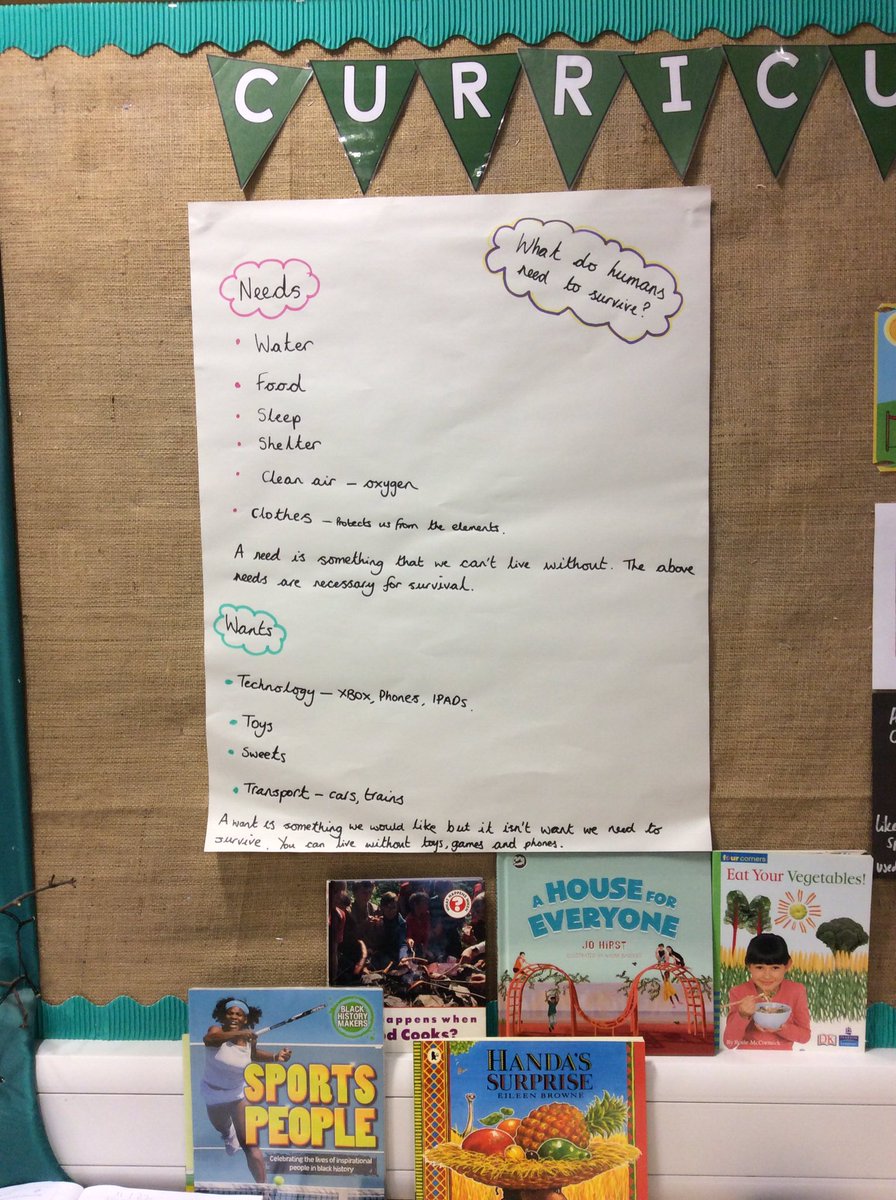 CURRICU
What do humans
need to survive?
Needs
• Water
• Food
• Sleep
• Shelter
• Clean air – oxygen
• Clothes – Protects us from the elements.
A need is something that we can't live without. The above
needs are necessary for survival.
Wants
• Technology – XBOX, Phones, IPADs.
• Toys
• Sweets
• Transport – cars, trains
A want is something we would like but it isn't want we need to
survive. You can live without toys, games and phones.
appens when
d Cooks?
A HOUSE FOR
EVERYONE
JO HIRST
four corners
Eat Your Vegetables!
By Rosie McCormick
DK
PEARSON
BLACK
HISTORY
MAKERS
SPORTS
PEOPLE
Celebrating the lives of inspirational
people in black history
HANDA'S
SURPRISE
EILEEN BROWNE
like
sp
used